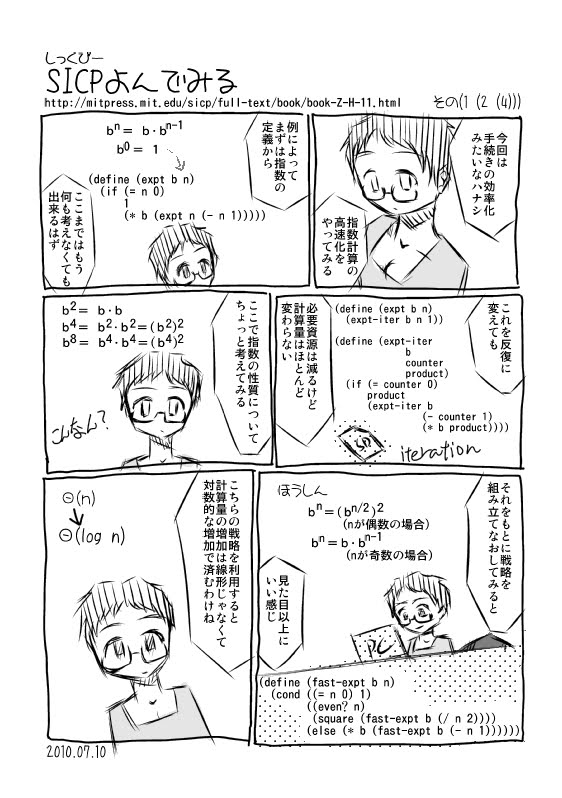 しっくぴー
SICPよんでみる
http://mitpress.mit.edu/sicp/full-text/book/book-Z-H-11.html
その(1 (2 (4)))
今回は
手続きの効率化
みたいなハナシ
指数計算の
高速化を
やってみる
例によって
まずは指数の
定義から
bⁿ= b·bⁿ⁻¹
b⁰= 1
(define (expt b n)
(if (= n 0)
1
(* b (expt n (- n 1)))))
ここまではもう
何も考えなくても
出来るはず
これを反復に
変えても
(define (expt b n)
(expt-iter b n 1))
(define (expt-iter
b
counter
product)
(if (= counter 0)
product
(expt-iter b
(- counter 1)
(* b product))))
iteration
必要資源は減るけど
計算量はほとんど
変わらない
ここで指数の性質について
ちょっと考えてみる
b²= b·b
b⁴= b²·b²=(b²)²
b⁸= b⁴·b⁴=(b⁴)²
こんなん?
それをもとに戦略を
組み立てなおしてみると
ほうしん
bⁿ=(bⁿ/²)²
(nが偶数の場合)
bⁿ=b·bⁿ⁻¹
(nが奇数の場合)
見た目以上に
いい感じ
PC
(define (fast-expt b n)
(cond ((= n 0) 1)
((even? n)
(square (fast-expt b (/ n 2))))
(else (* b (fast-expt b (- n 1))))))
こちらの戦略を利用すると
計算量の増加は線形じゃなくて
対数的な増加で済むわけね
Θ(n)
Θ(log n)
2010.07.10